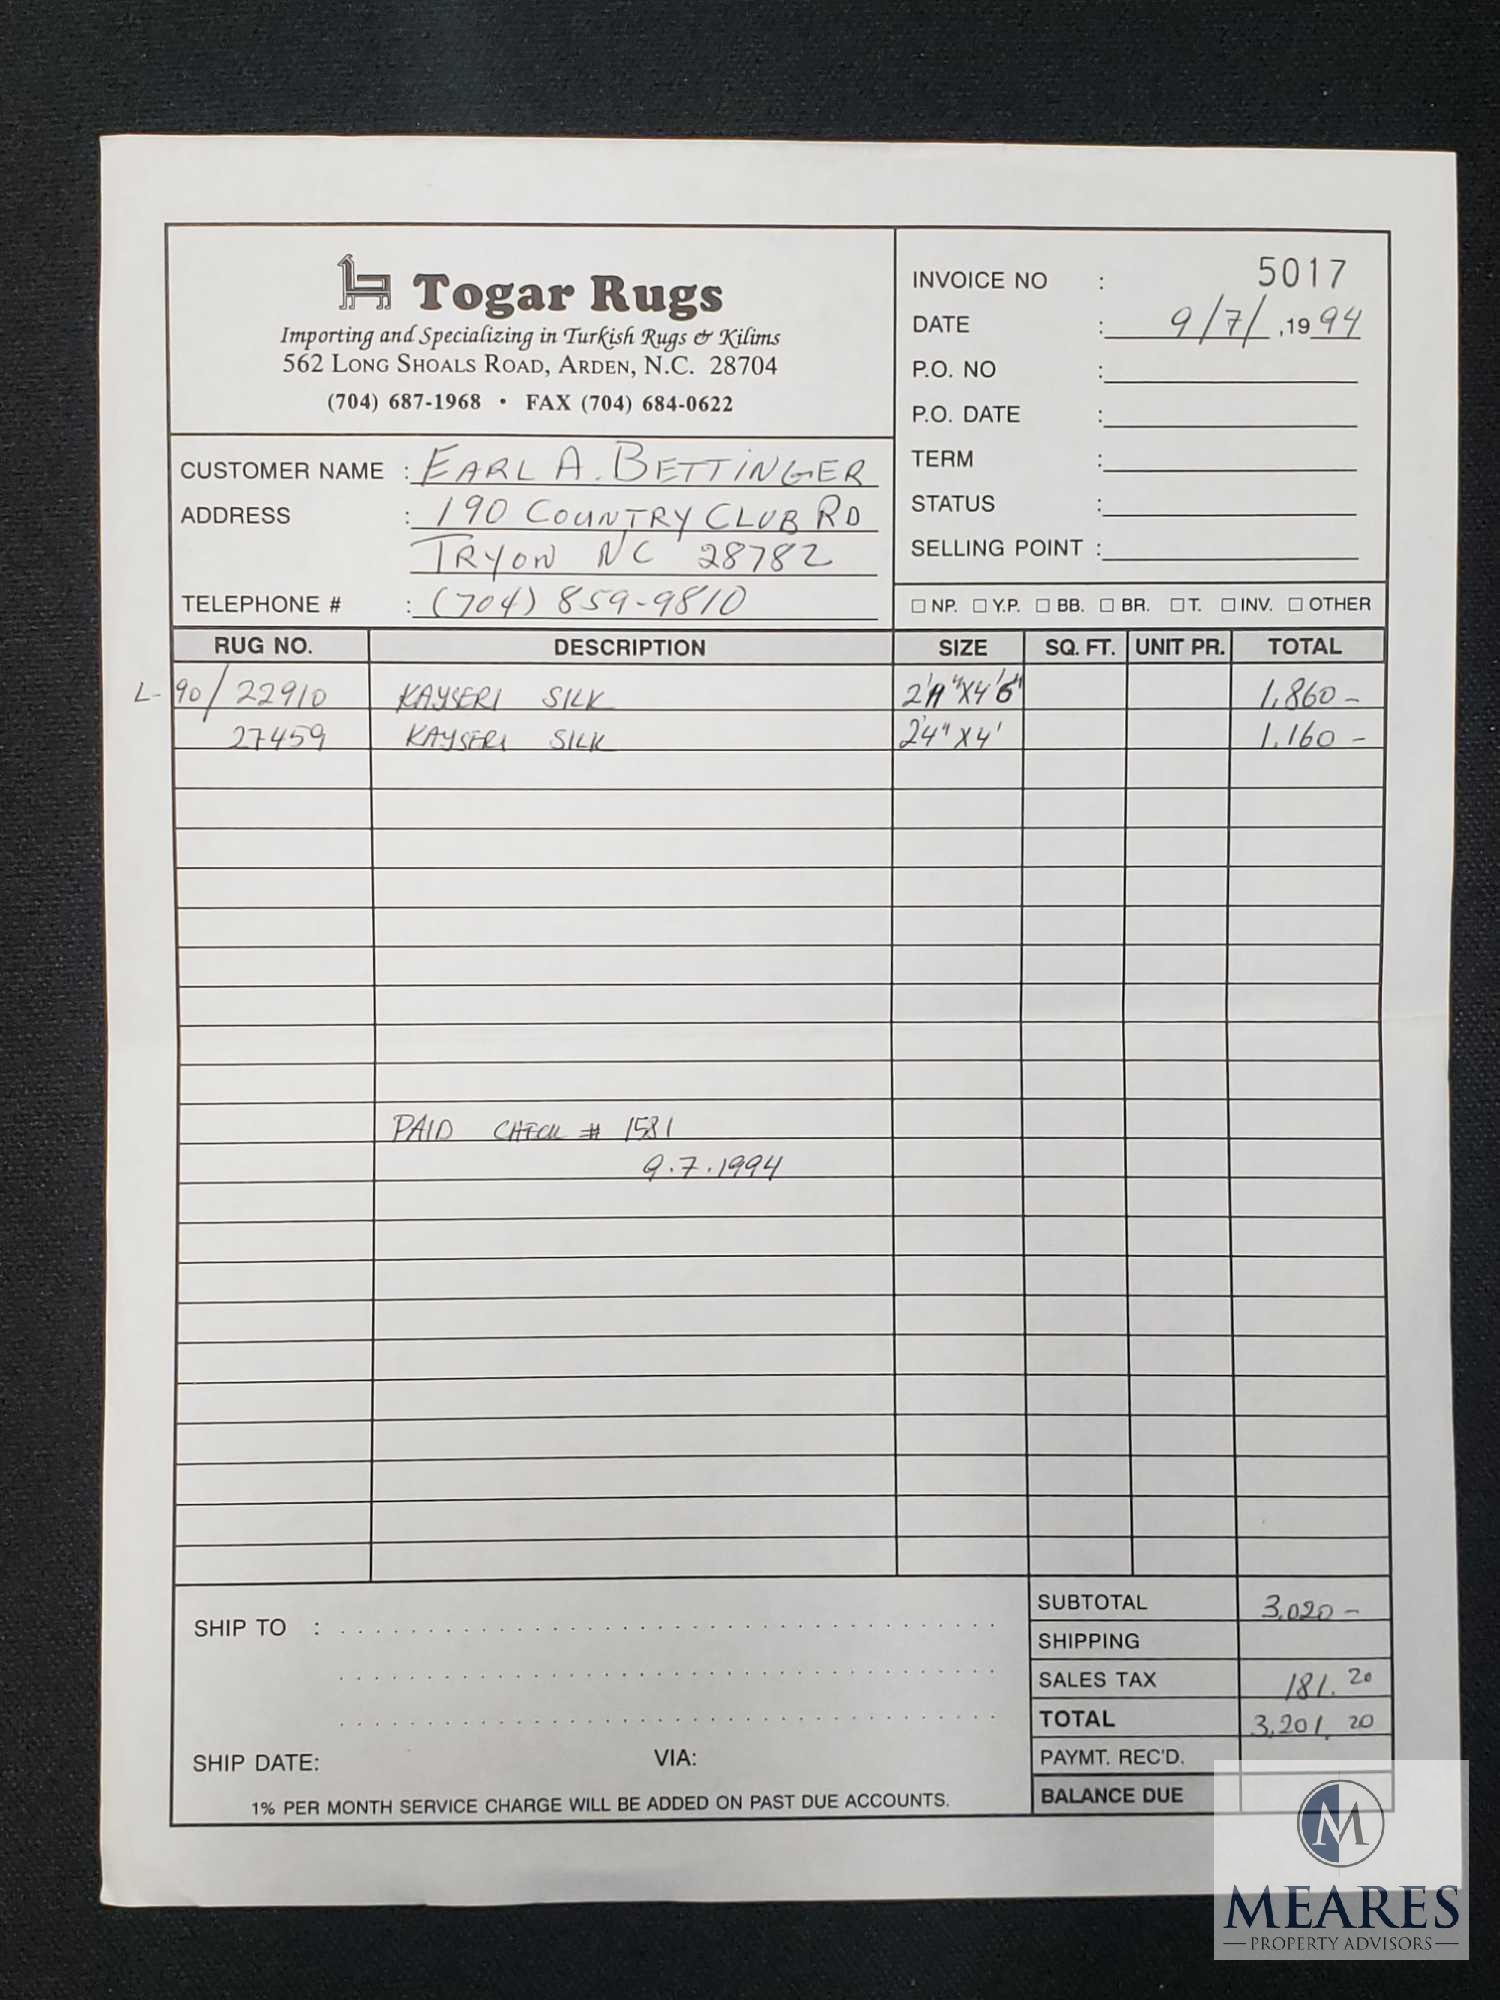 Togar Rugs
Importing and Specializing in Turkish Rugs & Kilims
562 LONG SHOALS ROAD, ARDEN, N.C. 28704
(704) 687-1968 • FAX (704) 684-0622
INVOICE NO : 5017
DATE : 9/7/ ,19 94
P.O. NO :
P.O. DATE :
TERM :
STATUS :
SELLING POINT :
CUSTOMER NAME : EARL A. BETTINGER
ADDRESS : 190 COUNTRY CLUB RD
TRYON NC 28782
TELEPHONE # : (704) 859-9810
□ NP. □ Y.P. □ BB. □ BR. □ T. □ INV. □ OTHER
RUG NO. DESCRIPTION SIZE SQ. FT. UNIT PR. TOTAL
L-90/22910 KAYSERI SILK 1,860 –
27459 KAYSERI SILK 2'4" X 4' 1.160 –
PAID CHECK # 1581
9.7.1994
SUBTOTAL 3.020 –
SHIPPING
SALES TAX 181.20
TOTAL 3,201.20
PAYMT. REC'D.
BALANCE DUE
SHIP TO :
SHIP DATE: VIA:
1% PER MONTH SERVICE CHARGE WILL BE ADDED ON PAST DUE ACCOUNTS.
M
MEARES
PROPERTY ADVISORS